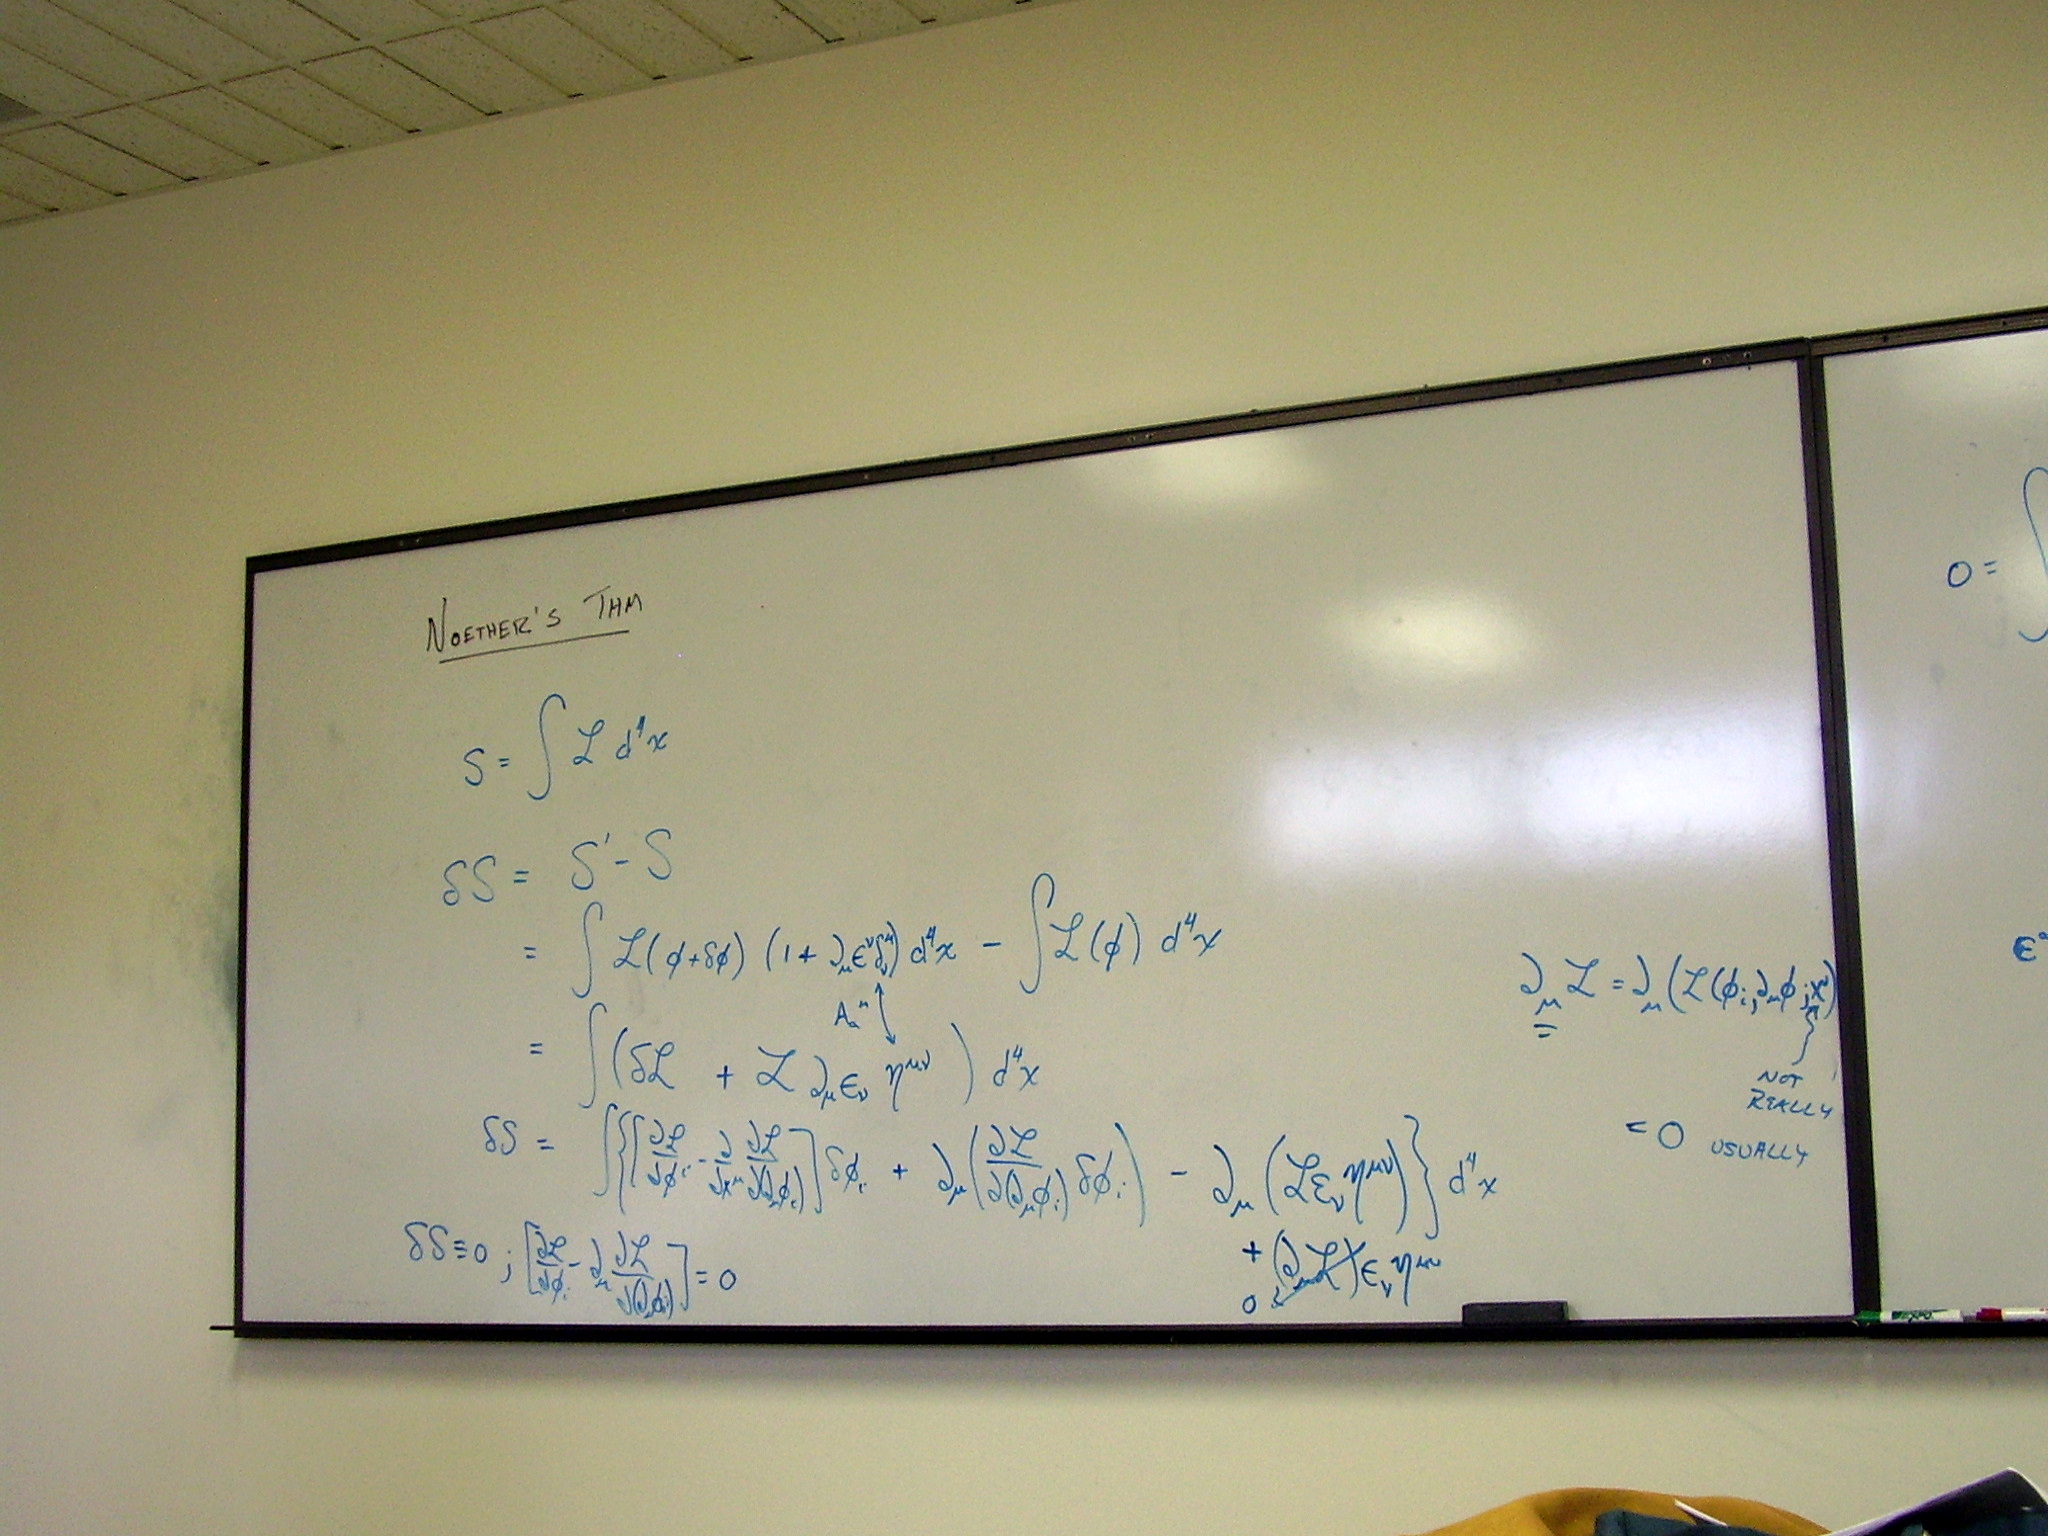 NOETHER'S THM
S = ∫ ℒ d⁴x
δS = S' - S
= ∫ ℒ(ϕ+δϕ) (1+ ∂_μ ε^ν δ_ν^μ) d⁴x - ∫ ℒ(ϕ) d⁴x
= ∫ (δℒ + ℒ ∂_μ ε_ν η^{μν}) d⁴x
δS = ∫{[∂ℒ/∂ϕ_i - ∂/∂x^μ ∂ℒ/∂(∂_μϕ_i)] δϕ_i + ∂_μ(∂ℒ/∂(∂_μϕ_i) δϕ_i) - ∂_μ(ℒ ε_ν η^{μν})} d⁴x
+ (∂_μ ℒ) ε_ν η^{μν}
0
δS ≡ 0 ; [∂ℒ/∂ϕ_i - ∂_μ ∂ℒ/∂(∂_μϕ_i)] = 0
∂_μ ℒ = ∂_μ(ℒ(ϕ_i, ∂_μϕ_i; x^ν)
NOT
REALLY
= 0 USUALLY
0 = ∫
EXPO